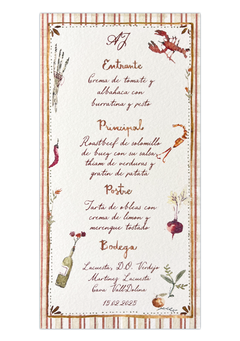 AJ
Entrante
Crema de tomate y
albahaca con
burratina y pesto
Principal
Roastbeef de solomillo
de buey con su salsa,
tham de verduras y
gratin de patata
Postre
Tarta de obleas con
crema de limon y
merengue tostado
Bodega
Lacuesta, D.O. Verdejo
Martinez Lacuesta
Cava VallDolina
15.02.2025